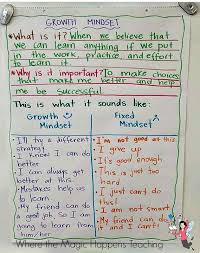 GROWTH MINDSET
•What is it? When we believe that
we can learn anything if we put
in the work, practice, and effort
to learn it.
•Why is it important? To make choices
that make me better and help
me be successful.
This is what it sounds like:
Growth
Mindset
Fixed
Mindset
•I'll try a different
strategy.
•I know I can do
better
•I can always get
better at this.
•Mistakes help us
to learn.
•My friend can do
a good job, so I am
going to learn from
him/her.
•I'm not good at this
•I give up.
•It's good enough.
•This is just too
hard
•I just can't do
this!
•I am not smart
•My friend can do
it and I can't!
Where the Magic Happens Teaching